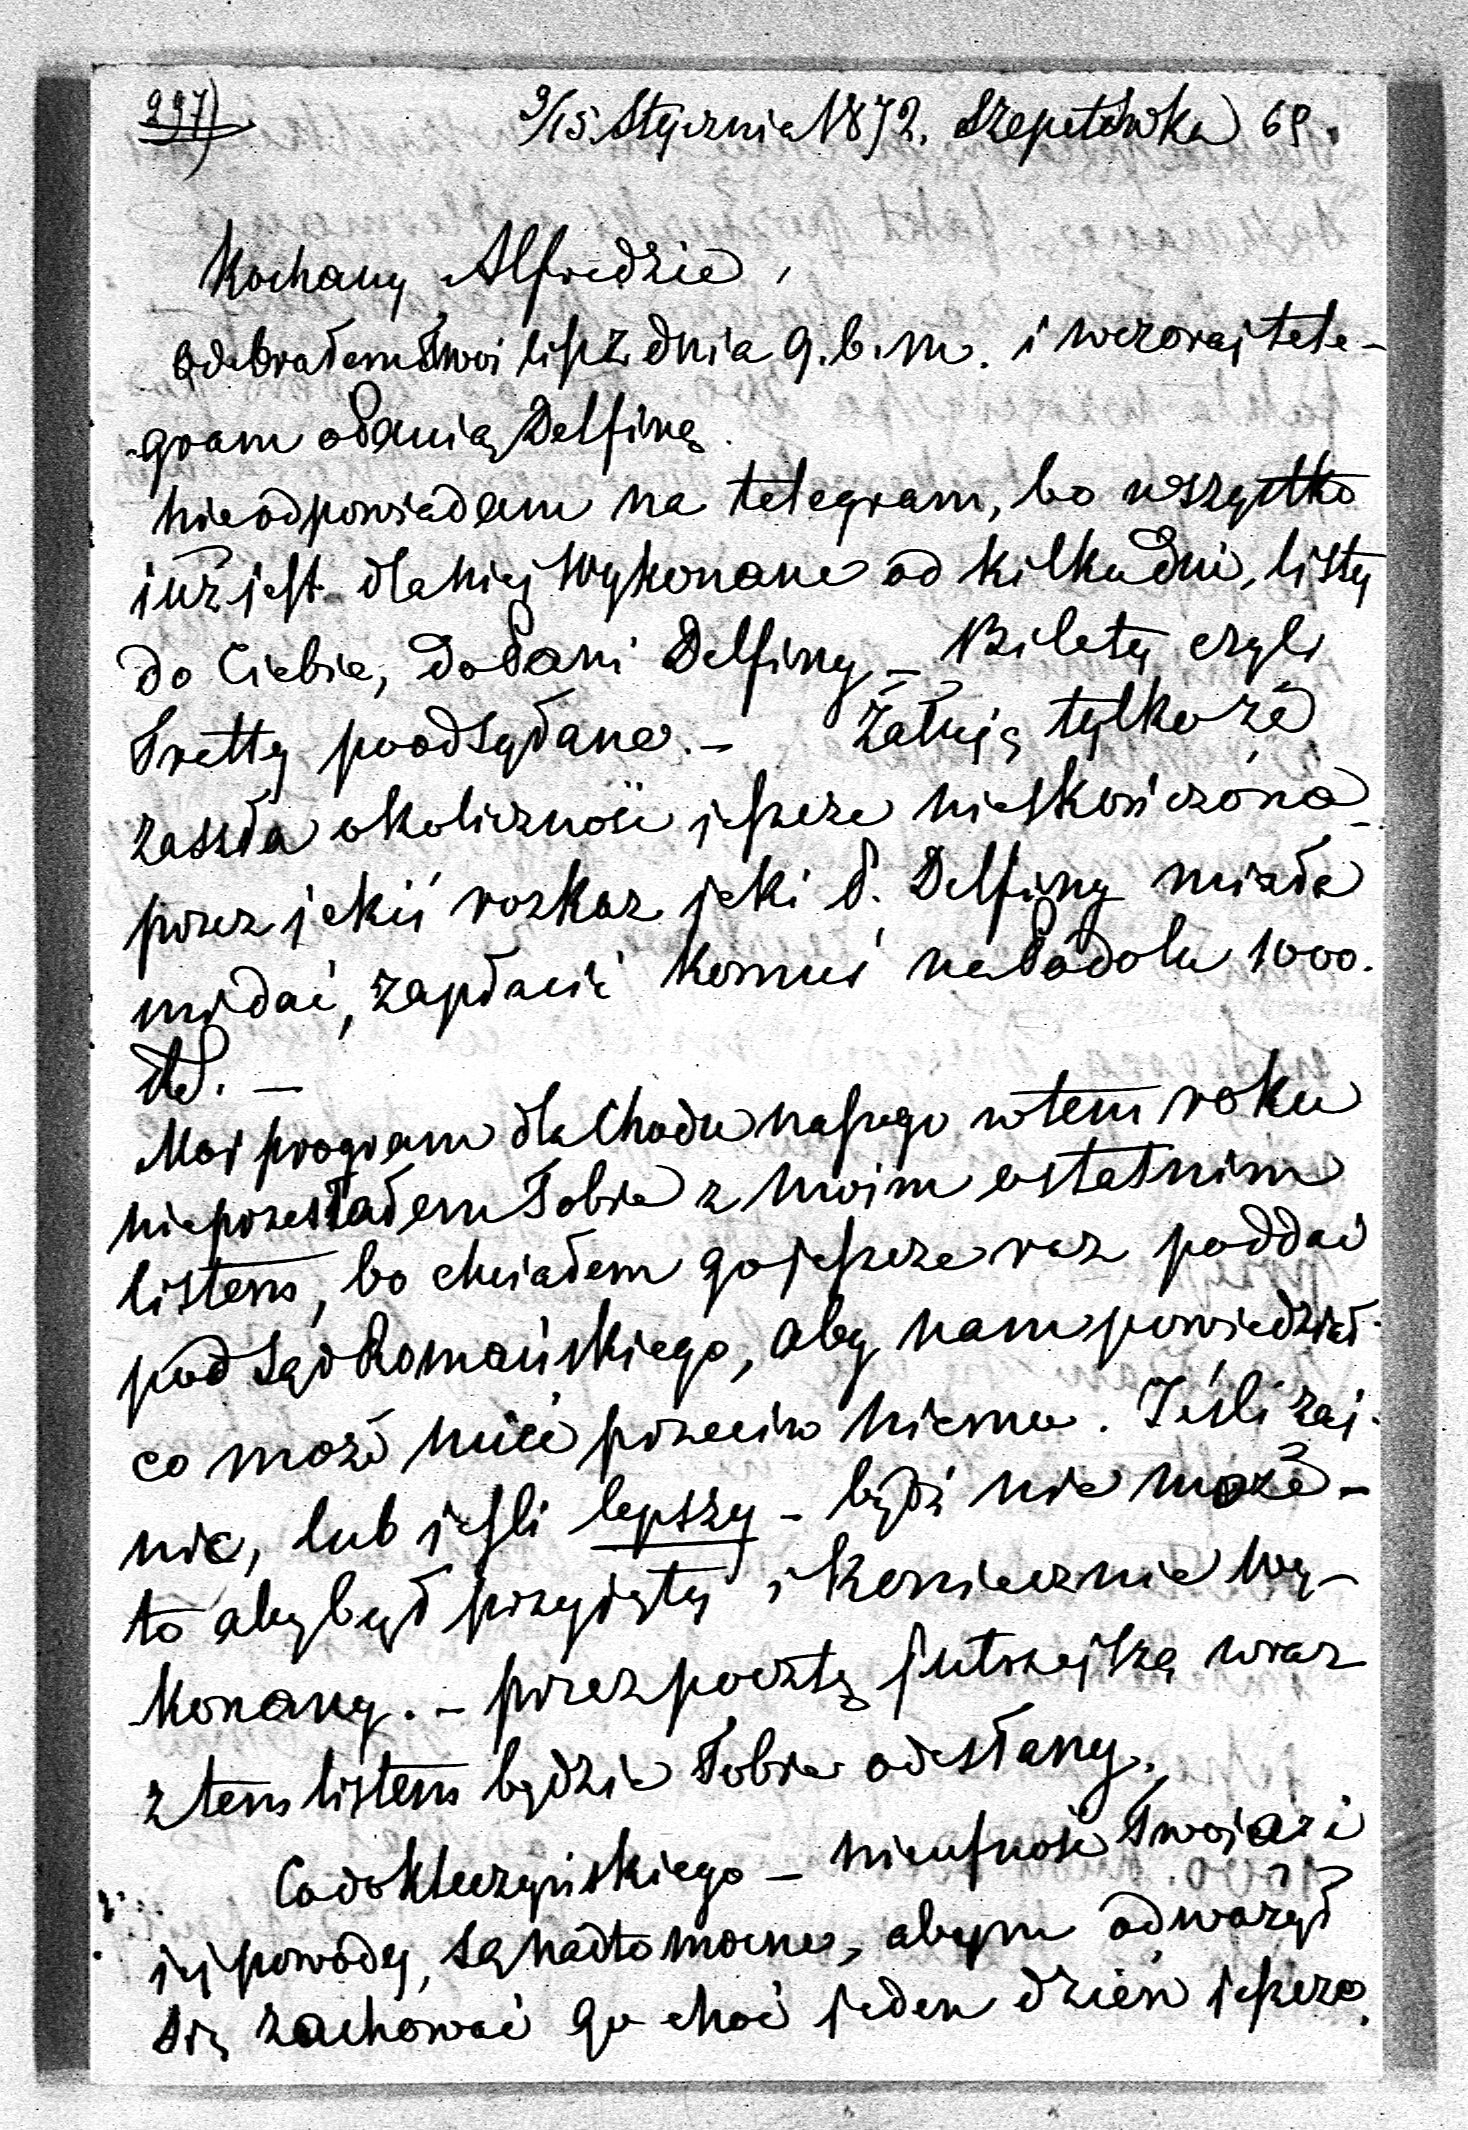 297)
3/15 Stycznia 1872. Szepetówka 69.
Kochany Alfredzie,
Odebrałem Twoi list z dnia 9. b. m. i wczoraj tele-
-gram o Panią Delfinę.
nieodpowiadam na telegram, bo wszystko
iuż jest dla niej wykonane od kilku dni, listy
do Ciebie, do Pani Delfiny – Bilety czyli
Tretty poodsyłane. – Żałuję tylko że
zaszła okoliczność jeszcze nieskończona
przez jakiś rozkaz jaki P. Delfiny miała
mi dać, zapłacić komuś na Podolu 1000.
Moi program dla Chodu naszego w tem roku
nieprzesłałem Tobie z moim ostatnim
listem, bo chciałem go jeszcze raz poddać
pod sąd Romańskiego, aby nam powiedział
co może mieć przeciw niemu. Jeśli zaś
nic, lub jeśli lepszy – bydź nie może –
to aby był przyjęty i koniecznie wy-
konany. – przez pocztę jutrzejszą wraz
z tem listem będzie Tobie odesłany.
Co do Kluczyńskiego – nieufność Twoja i
jej powody, są nadto mocne, abym odważył
się zachować go choć jeden dzień jeszcze.